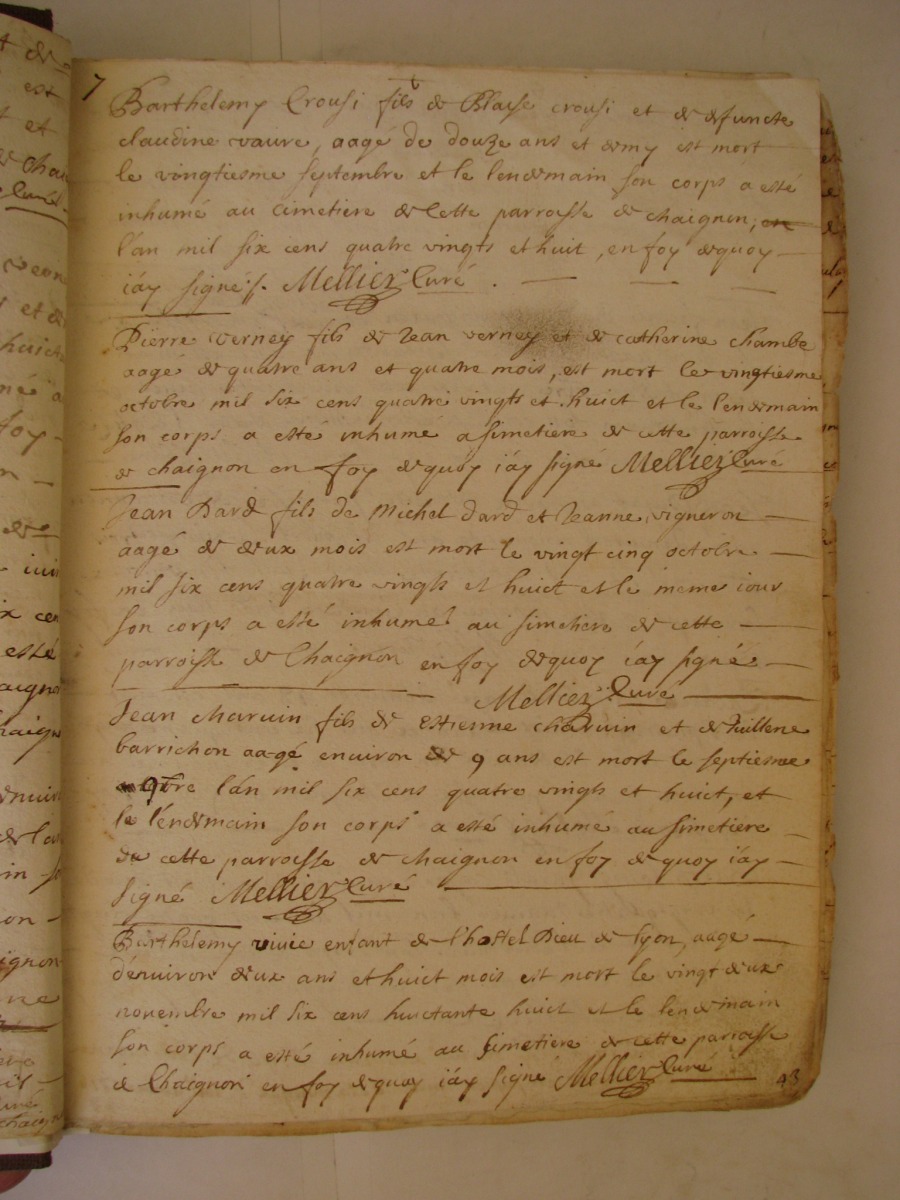 7
Barthelemy Crousi fils de Blaise crousi et de defuncte
claudine vaure, aagé de douze ans et demy est mort
le vingtiesme septembre et le lendemain son corps a esté
inhumé au cimetiere de Cette parroisse de chaignon,
l'an mil six cens quatre vingts et huit, en foy dequoy
iáy signé Mellier Curé
Pierre verney fils de Jean verney et de catherine chambe
aagé de quatre ans et quatre mois, est mort le vingtiesme
octobre mil six cens quatre vingts et huict et le lendemain
son corps a esté inhumé a simetiere de cette parroisse
de chaignon en foy dequoy iáy signé Mellier Curé
Jean Dard fils de Michel dard et Jeanne vigneron
aagé de deux mois est mort le vingt cinq octobre
mil six cens quatre vingts et huict et le meme iour
son corps a esté inhumé au simetiere de cette
parroisse de Chaignon en foy dequoy iáy signé
Mellier Curé
Jean charuin fils de Estienne charuin et de
barrichon aagé enuiron de 9 ans est mort le septiesme
9bre l'an mil six cens quatre vingts et huict, et
le lendemain son corps a esté inhumé au simetiere
de cette parroisse de chaignon en foy de quoy iáy
signé Mellier Curé
Barthelemy vivie enfant de l'hostel Dieu de lyon, aagé
d'enuiron deux ans et huict mois est mort le vingt deux
novembre mil six cens huictante huict et le lendemain
son corps a esté inhumé au simetiere de cette paroisse
de Chaignon en foy dequoy iáy signé Mellier Curé
43